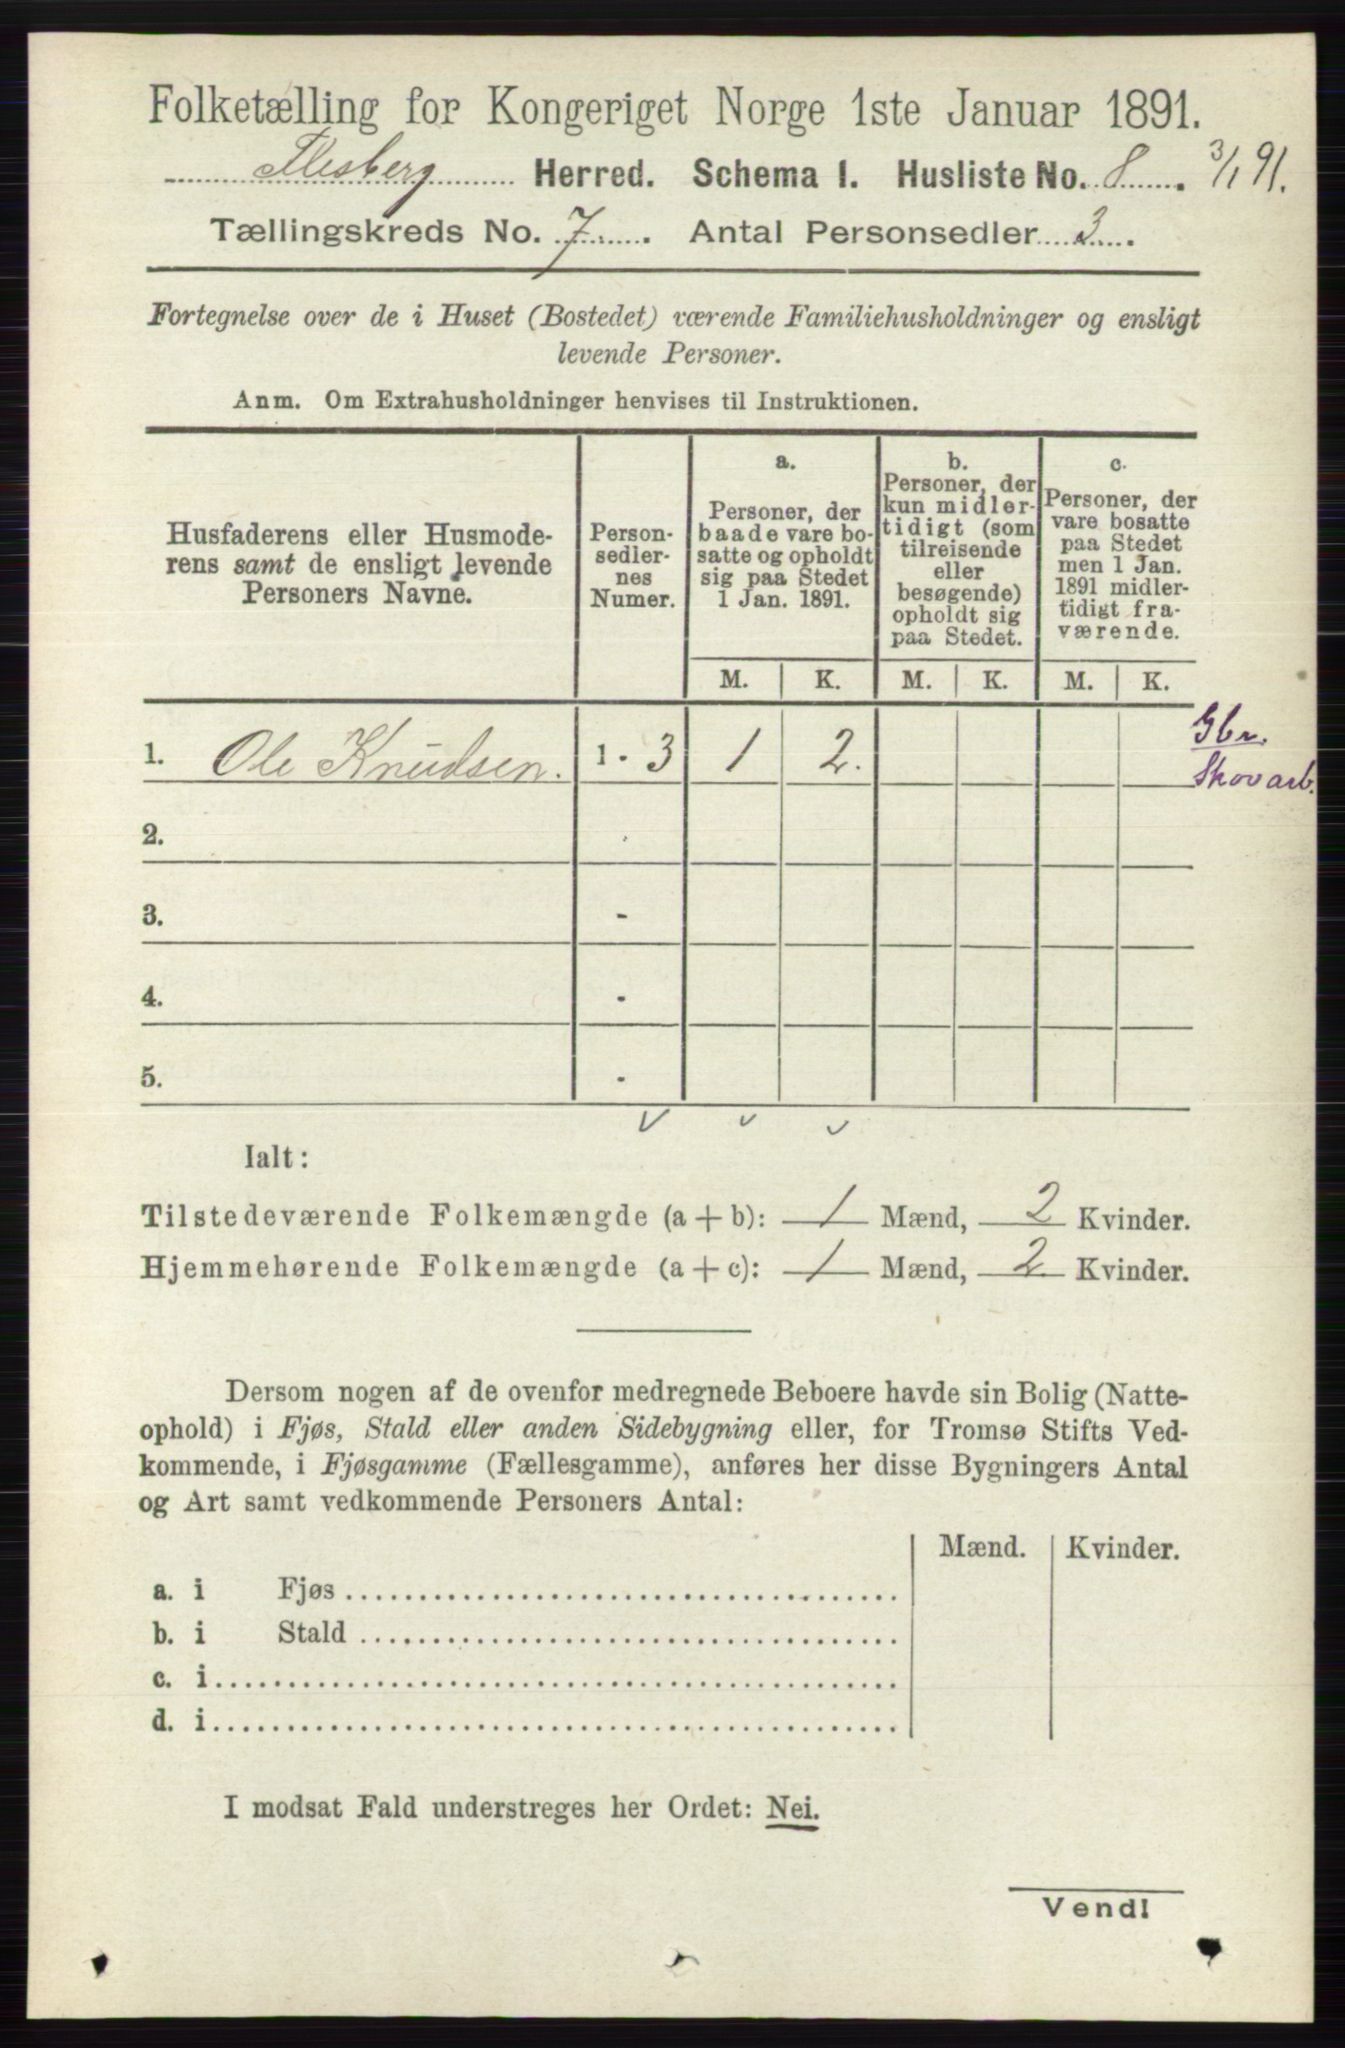 Folketælling for Kongeriget Norge 1ste Januar 1891.
Flesberg Herred. Schema I. Husliste No. 8. 3/1 91.
Tællingskreds No. 7. Antal Personsedler 3.
Fortegnelse over de i Huset (Bostedet) værende Familiehusholdninger og ensligt
levende Personer.
Anm. Om Extrahusholdninger henvises til Instruktionen.
Husfaderens eller Husmode-
rens samt de ensligt levende
Personers Navne.
Person-
sedler-
nes
Numer.
a.
Personer, der
baade vare bo-
satte og opholdt
sig paa Stedet
1 Jan. 1891.
b.
Personer, der
kun midler-
tidigt (som
tilreisende
eller
besøgende)
opholdt sig
paa Stedet.
c.
Personer, der
vare bosatte
paa Stedet
men 1 Jan.
1891 midler-
tidigt fra-
værende.
M. K. M. K. M. K.
1. Ole Knudsen. 1 - 3 1 2. Gbr.
Skovarb.
2. -
3. -
4. -
5. -
Ialt:
Tilstedeværende Folkemængde (a + b): 1 Mænd, 2 Kvinder.
Hjemmehørende Folkemængde (a + c): 1 Mænd, 2 Kvinder.
Dersom nogen af de ovenfor medregnede Beboere havde sin Bolig (Natte-
ophold) i Fjøs, Stald eller anden Sidebygning eller, for Tromsø Stifts Ved-
kommende, i Fjøsgamme (Fællesgamme), anføres her disse Bygningers Antal
og Art samt vedkommende Personers Antal:
Mænd. Kvinder.
a. i Fjøs
b. i Stald
c. i
d. i
I modsat Fald understreges her Ordet: Nei.
Vend!